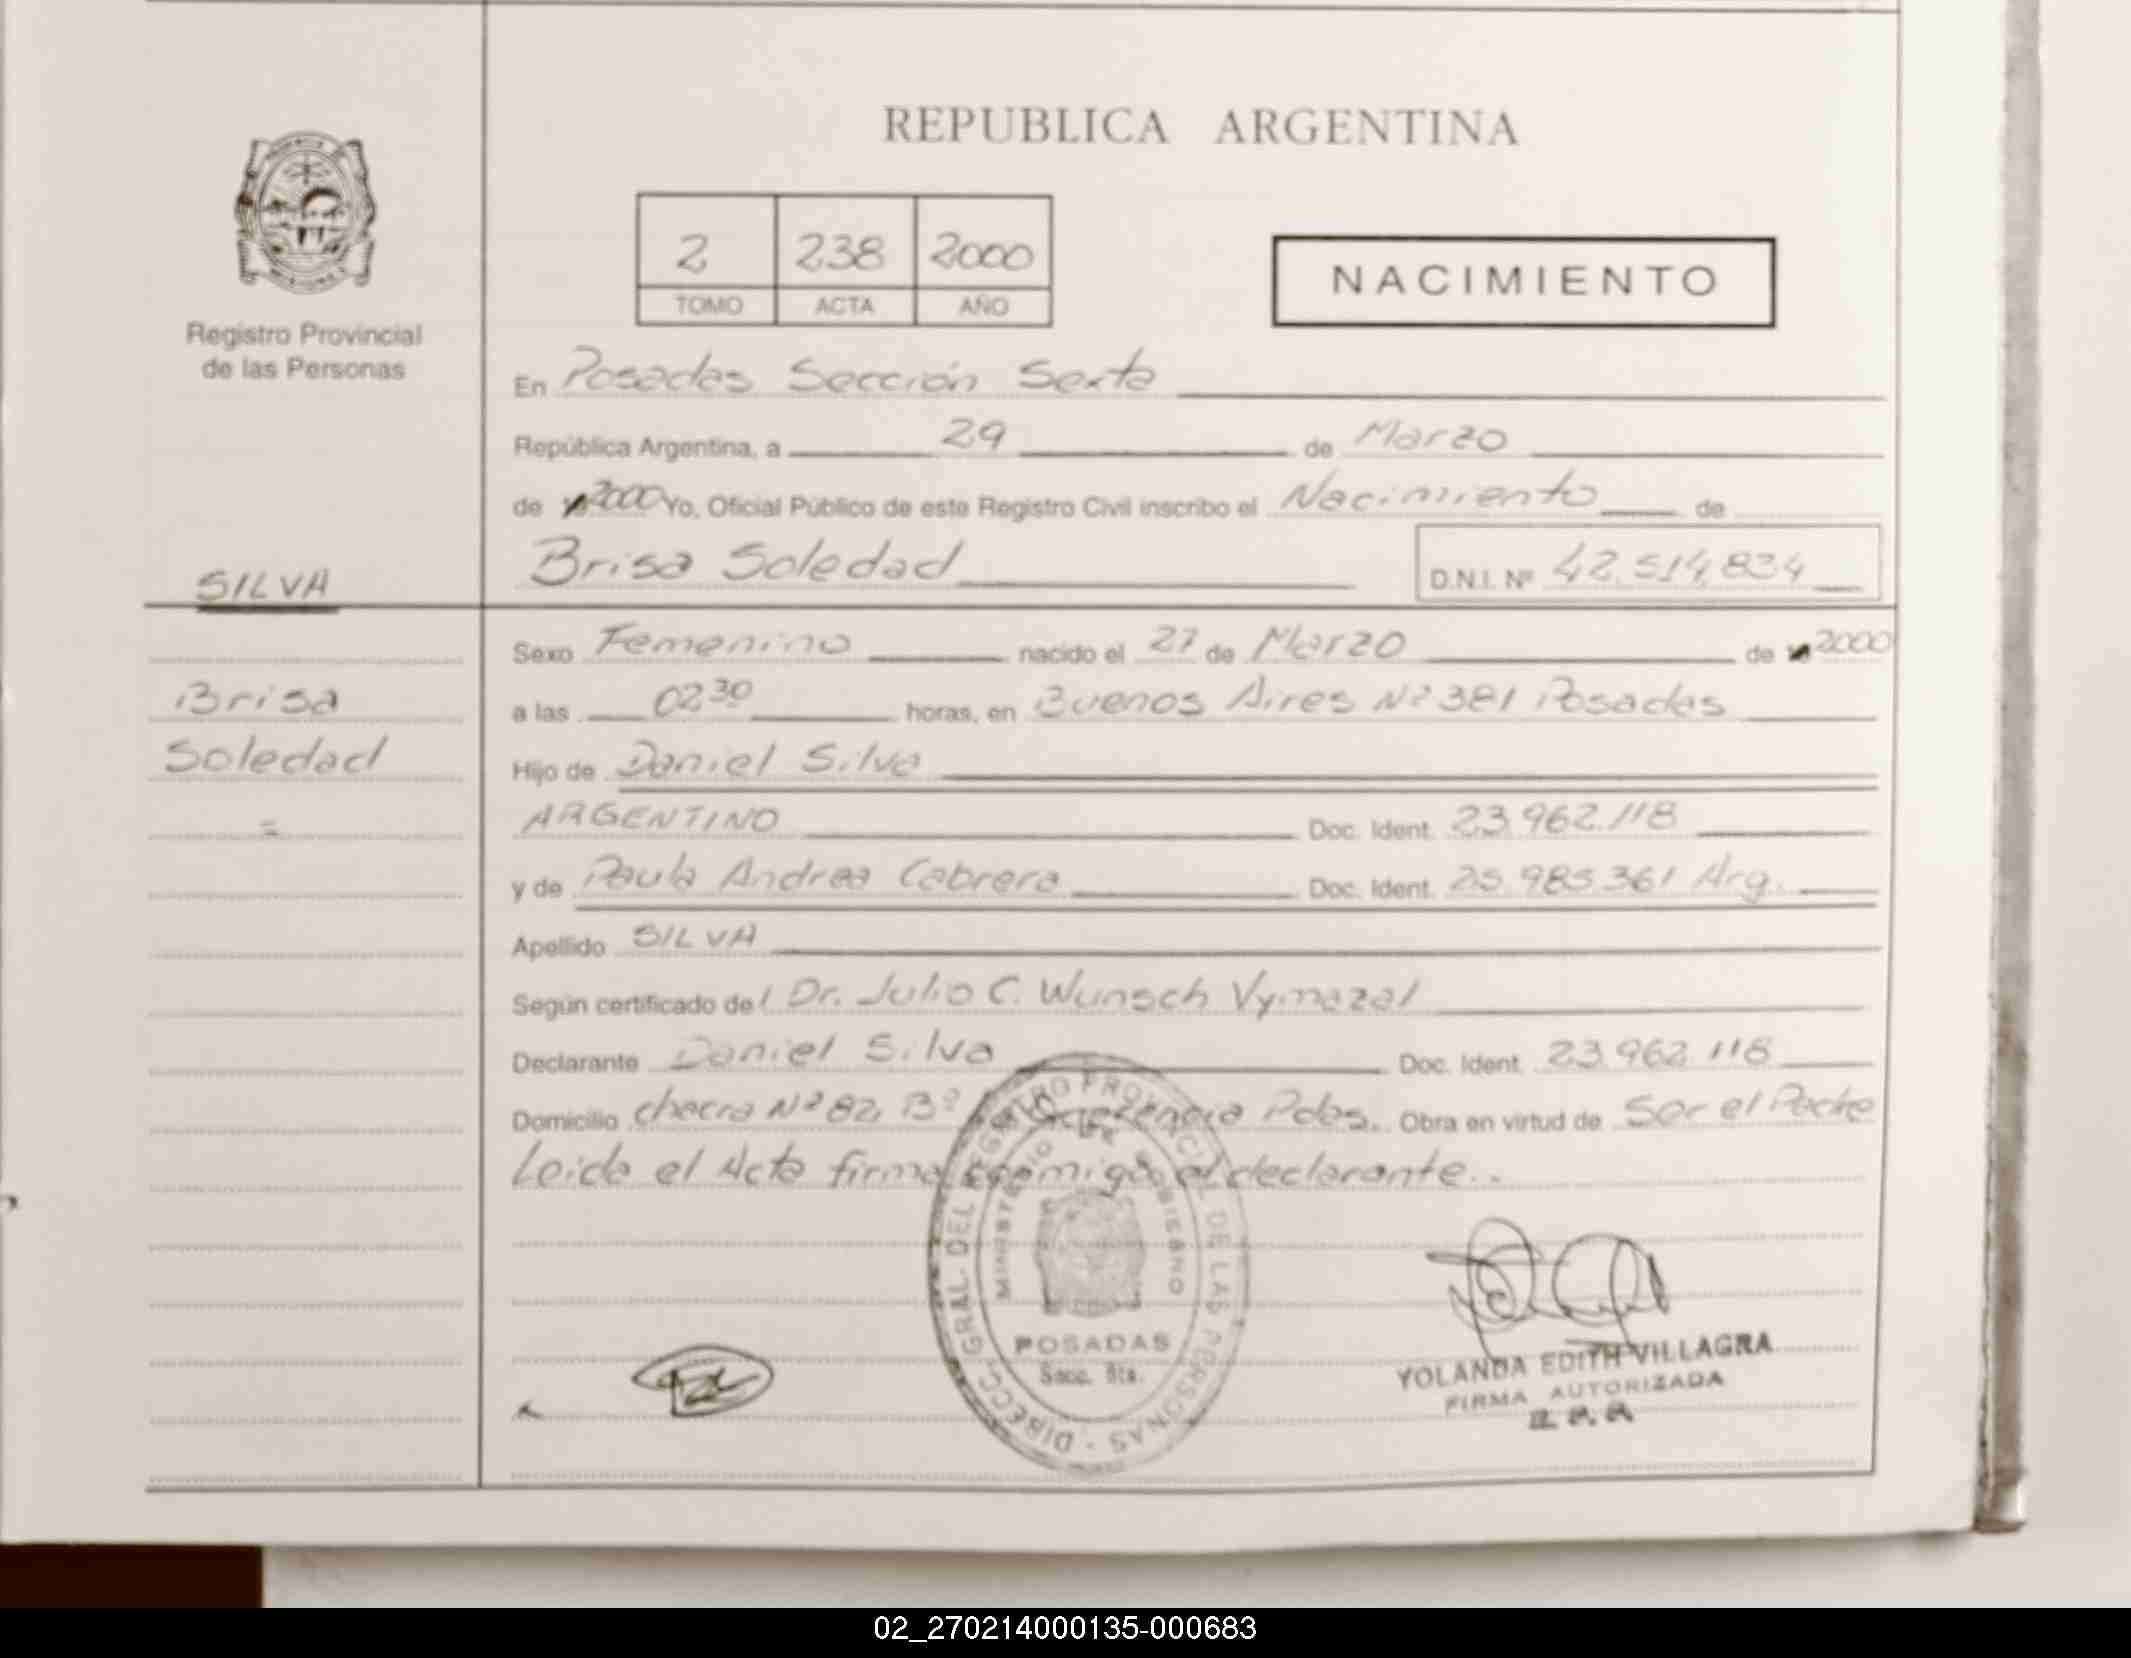 REPUBLICA ARGENTINA
2 238 2000
TOMO ACTA AÑO
NACIMIENTO
Registro Provincial
de las Personas
En Posadas Sección Sexta
República Argentina, a 29 de Marzo
de 2000 Yo, Oficial Público de este Registro Civil inscribo el Nacimiento de
Brisa Soledad D.N.I. Nº 42.514.834
SILVA
Brisa
Soledad
=
Sexo Femenino nacido el 27 de Marzo de 2000
a las 02 30 horas, en Buenos Aires Nº 381 Posadas
Hijo de Daniel Silva
ARGENTINO Doc. Ident. 23.962.118
y de Paula Andrea Cabrera Doc. Ident. 25.985.361 Arg.
Apellido SILVA
Según certificado del Dr. Julio C. Wunsch Vymazal
Declarante Daniel Silva Doc. Ident. 23.962.118
Domicilio chacra Nº 82, Bº Pdas. Obra en virtud de Ser el Padre
Leida el Acta firma conmigo el declarante..
DIRECC. GRAL. DEL REGISTRO PROVINCIAL DE LAS PERSONAS
MINISTERIO DE GOBIERNO
POSADAS
Secc. 6ta.
YOLANDA EDITH VILLAGRA
FIRMA AUTORIZADA
02_270214000135-000683